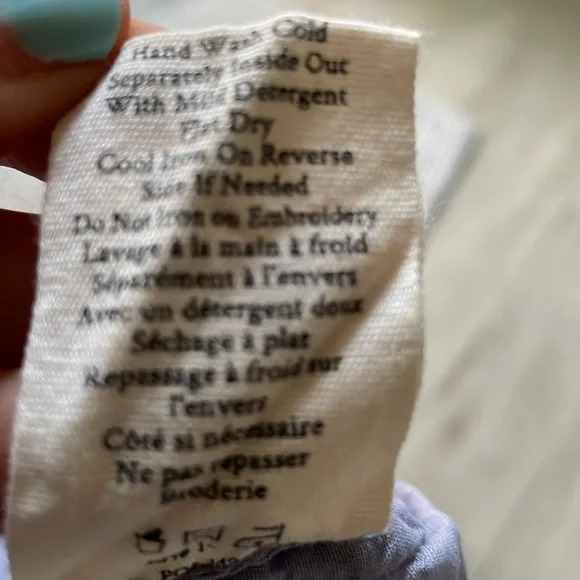 Hand Wash Cold
Separately Inside Out
With Mild Detergent
Flat Dry
Cool Iron On Reverse
Side If Needed
Do Not Iron on Embroidery
Lavage à la main à froid
Séparément à l'envers
Avec un détergent doux
Séchage à plat
Repassage à froid sur
l'envers
Côté si nécessaire
Ne pas repasser
Broderie